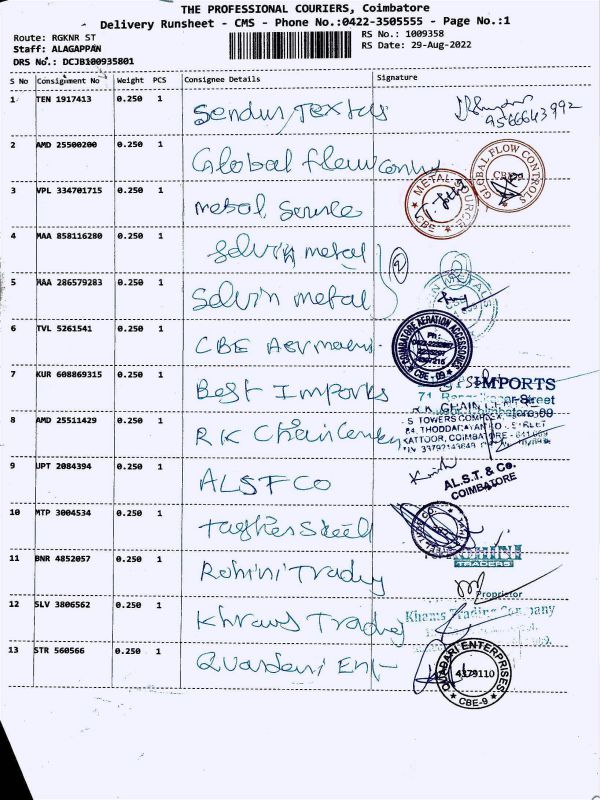 THE PROFESSIONAL COURIERS, Coimbatore
Delivery Runsheet - CMS - Phone No.:0422-3505555 - Page No.:1
Route: RGKNR ST
RS No.: 1009358
Staff: ALAGAPPAN
RS Date: 29-Aug-2022
DRS No.: DCJB100935801
S No Consignment No Weight PCS Consignee Details Signature
1 TEN 1917413 0.250 1 Sendur Textiles 9566643992
2 AMD 25500200 0.250 1 Global Flow GLOBAL FLOW CONTROLS
3 VPL 334701715 0.250 1 Metal Source METAL SOURCE CBE
4 MAA 858116280 0.250 1 Selvin metal
5 MAA 286579283 0.250 1 Selvin metal
6 TVL 5261541 0.250 1 CBE COIMBATORE AERATION ACCESSORIES Ph: CBE-09
7 KUR 608869315 0.250 1 Best Imports IMPORTS
71 Street
8 AMD 25511429 0.250 1 RK Chain
S TOWERS COMPLEX
KATTOOR, COIMBATORE
9 UPT 2084394 0.250 1 ALSTCO AL.S.T. & Co.
COIMBATORE
10 MTP 3004534 0.250 1 Steel
11 BNR 4852057 0.250 1 Rohini Trading ROHINI
TRADERS
Proprietor
12 SLV 3806562 0.250 1 Trading Khams Trading Company
13 STR 560566 0.250 1 Ent QUADARI ENTERPRISES 4379110 CBE-9